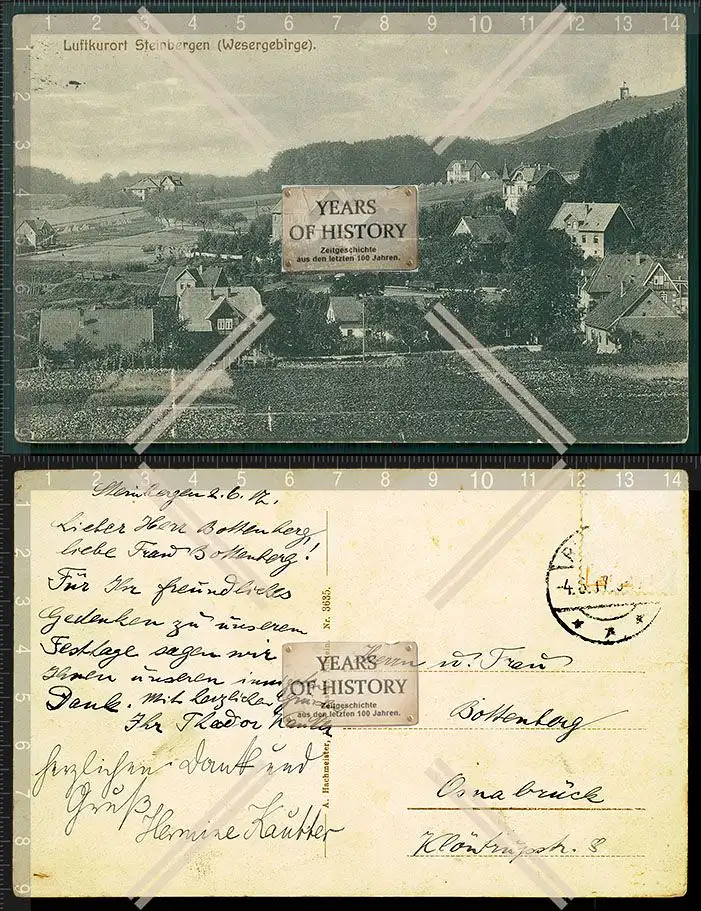 Luftkurort Steinbergen (Wesergebirge).
YEARS
OF HISTORY
Zeitgeschichte
aus den letzten 100 Jahren.
Steinbergen 2.6.17.
Lieber Herr Bottenberg,
liebe Frau Bottenberg!
Für Ihr freundliches
Gedenken zu unserem
Festtage sagen wir
Ihnen unseren
Dank. Mit herzlichen
Ihr
herzlichen Dank und
Gruß
Hermine Kautter
A. Hachmeister,
Nr. 3635.
YEARS
OF HISTORY
Zeitgeschichte
aus den letzten 100 Jahren.
Herrn u. Frau
Bottenberg
Osnabrück
Klöntrupstr. 8